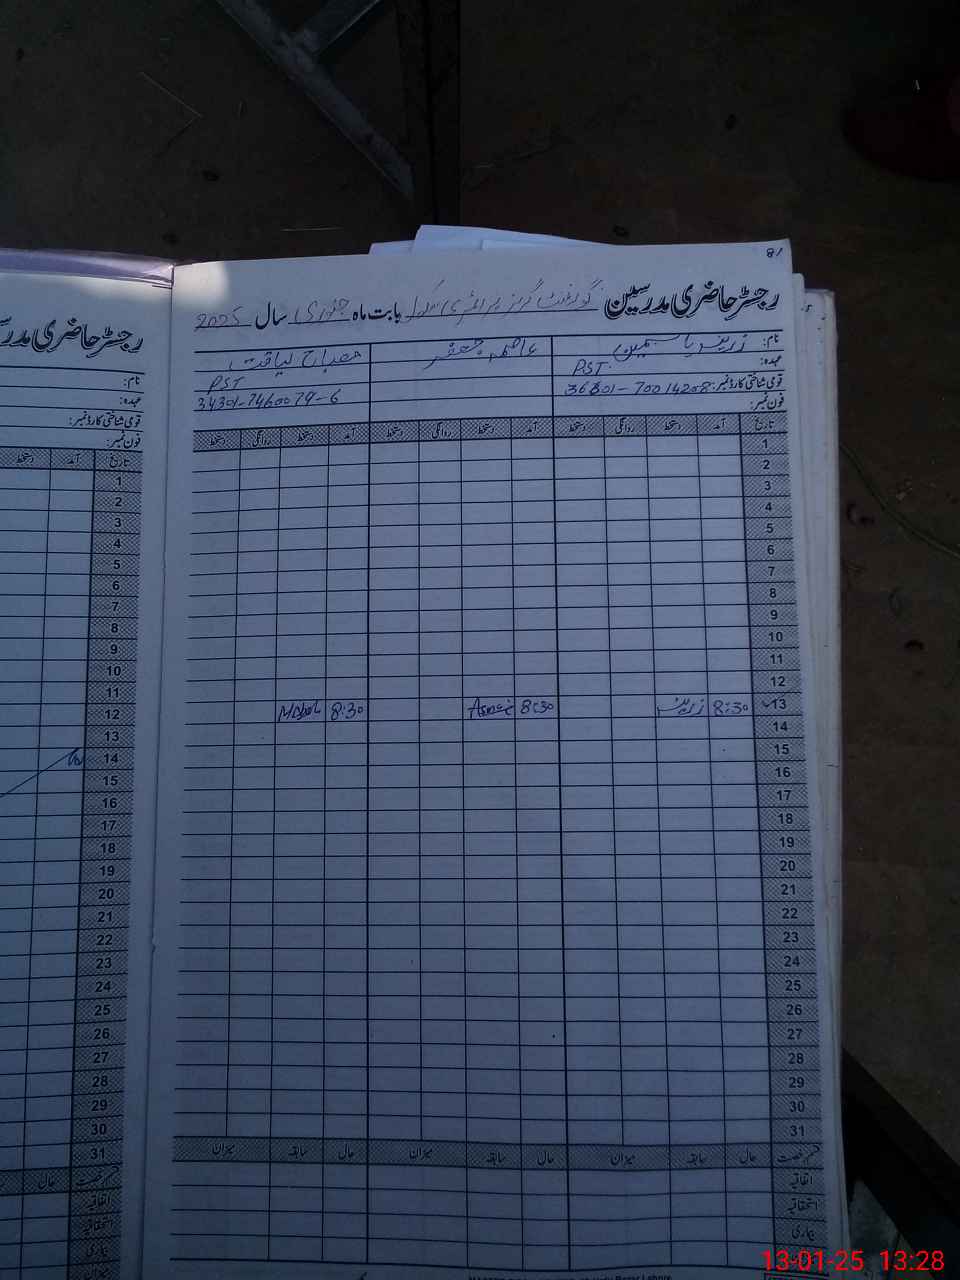 81
رجسٹر حاضری مدرسین گورنمنٹ گرلز پرائمری سکول بابت ماہ جنوری سال 2025
نام: زرینہ یاسمین عاصمہ جعفر مصباح لیاقت
عہدہ: PST PST
قومی شناختی کارڈ نمبر: 34301-7460079-6
فون نمبر:
تاریخ آمد دستخط روانگی دستخط آمد دستخط روانگی دستخط آمد دستخط روانگی دستخط
1
2
3
4
5
6
7
8
9
10
11
12
13 8:30 زرینہ 8:30 8:30
14
15
16
17
18
19
20
21
22
23
24
25
26
27
28
29
30
31
قسم رخصت حال سابقہ میزان حال سابقہ میزان حال سابقہ میزان
اتفاقیہ
استحقاقیہ
بیماری
رجسٹر حاضری مدرسین
نام:
عہدہ:
قومی شناختی کارڈ نمبر:
فون نمبر:
تاریخ آمد دستخط
1
2
3
4
5
6
7
8
9
10
11
12
13
14
15
16
17
18
19
20
21
22
23
24
25
26
27
28
29
30
31
قسم رخصت حال
اتفاقیہ
استحقاقیہ
بیماری
13-01-25 13:28